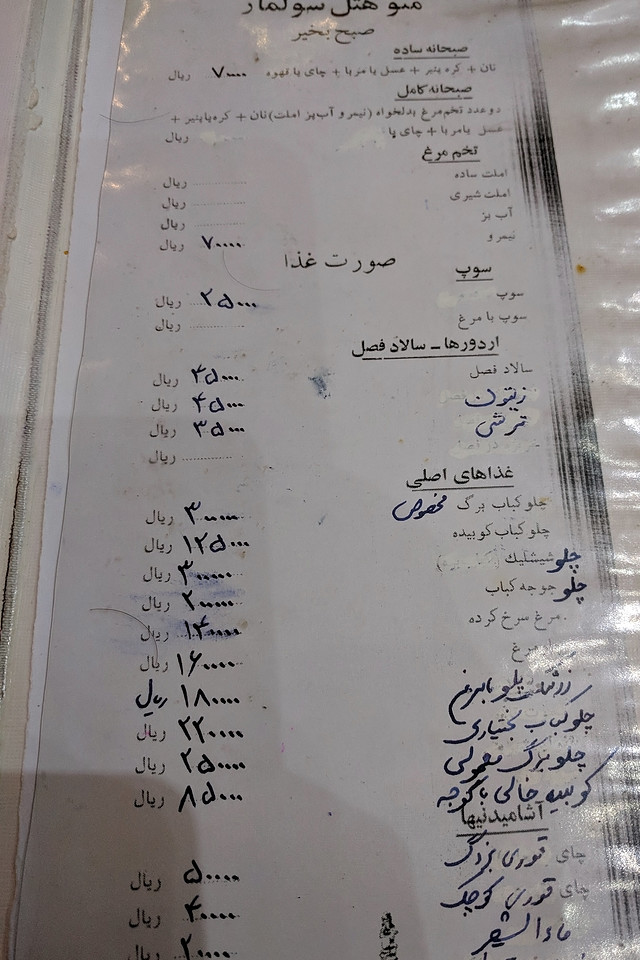 منو هتل سولمار
صبح بخیر
صبحانه ساده
نان + کره پنیر + عسل یا مربا + چای یا قهوه ۷۰۰۰۰ ریال
صبحانه کامل
دو عدد تخم‌مرغ بدلخواه (نیمرو آب‌پز املت) نان + کره یا پنیر +
عسل یا مربا + چای یا ریال
تخم مرغ
املت ساده ........ ریال
املت شیری ........ ریال
آب پز ........ ریال
نیمرو ۷۰۰۰۰ ریال
صورت غذا
سوپ
سوپ ۲۵۰۰۰ ریال
سوپ با مرغ ........ ریال
اردورها ـ سالاد فصل
سالاد فصل ۴۵۰۰۰ ریال
زیتون ۴۵۰۰۰ ریال
ترشی ۳۵۰۰۰ ریال
........ ریال
غذاهای اصلی
چلو کباب برگ مخصوص ۳۰۰۰۰۰ ریال
چلو کباب کوبیده ۱۲۵۰۰۰ ریال
چلو شیشلیک ۳۰۰۰۰۰ ریال
چلو جوجه کباب ۲۰۰۰۰۰ ریال
مرغ سرخ کرده ۱۴۰۰۰۰ ریال
مرغ ۱۶۰۰۰۰ ریال
زرشک پلو با مرغ ۱۸۰۰۰۰ ریال
چلوکباب بختیاری ۲۲۰۰۰۰ ریال
چلو برگ معمولی ۲۵۰۰۰۰ ریال
کوبیده خالی با گوجه ۸۵۰۰۰ ریال
آشامیدنیها
چای قوری بزرگ ۵۰۰۰۰ ریال
چای قوری کوچک ۴۰۰۰۰ ریال
ماءالشعیر ۲۰۰۰۰ ریال